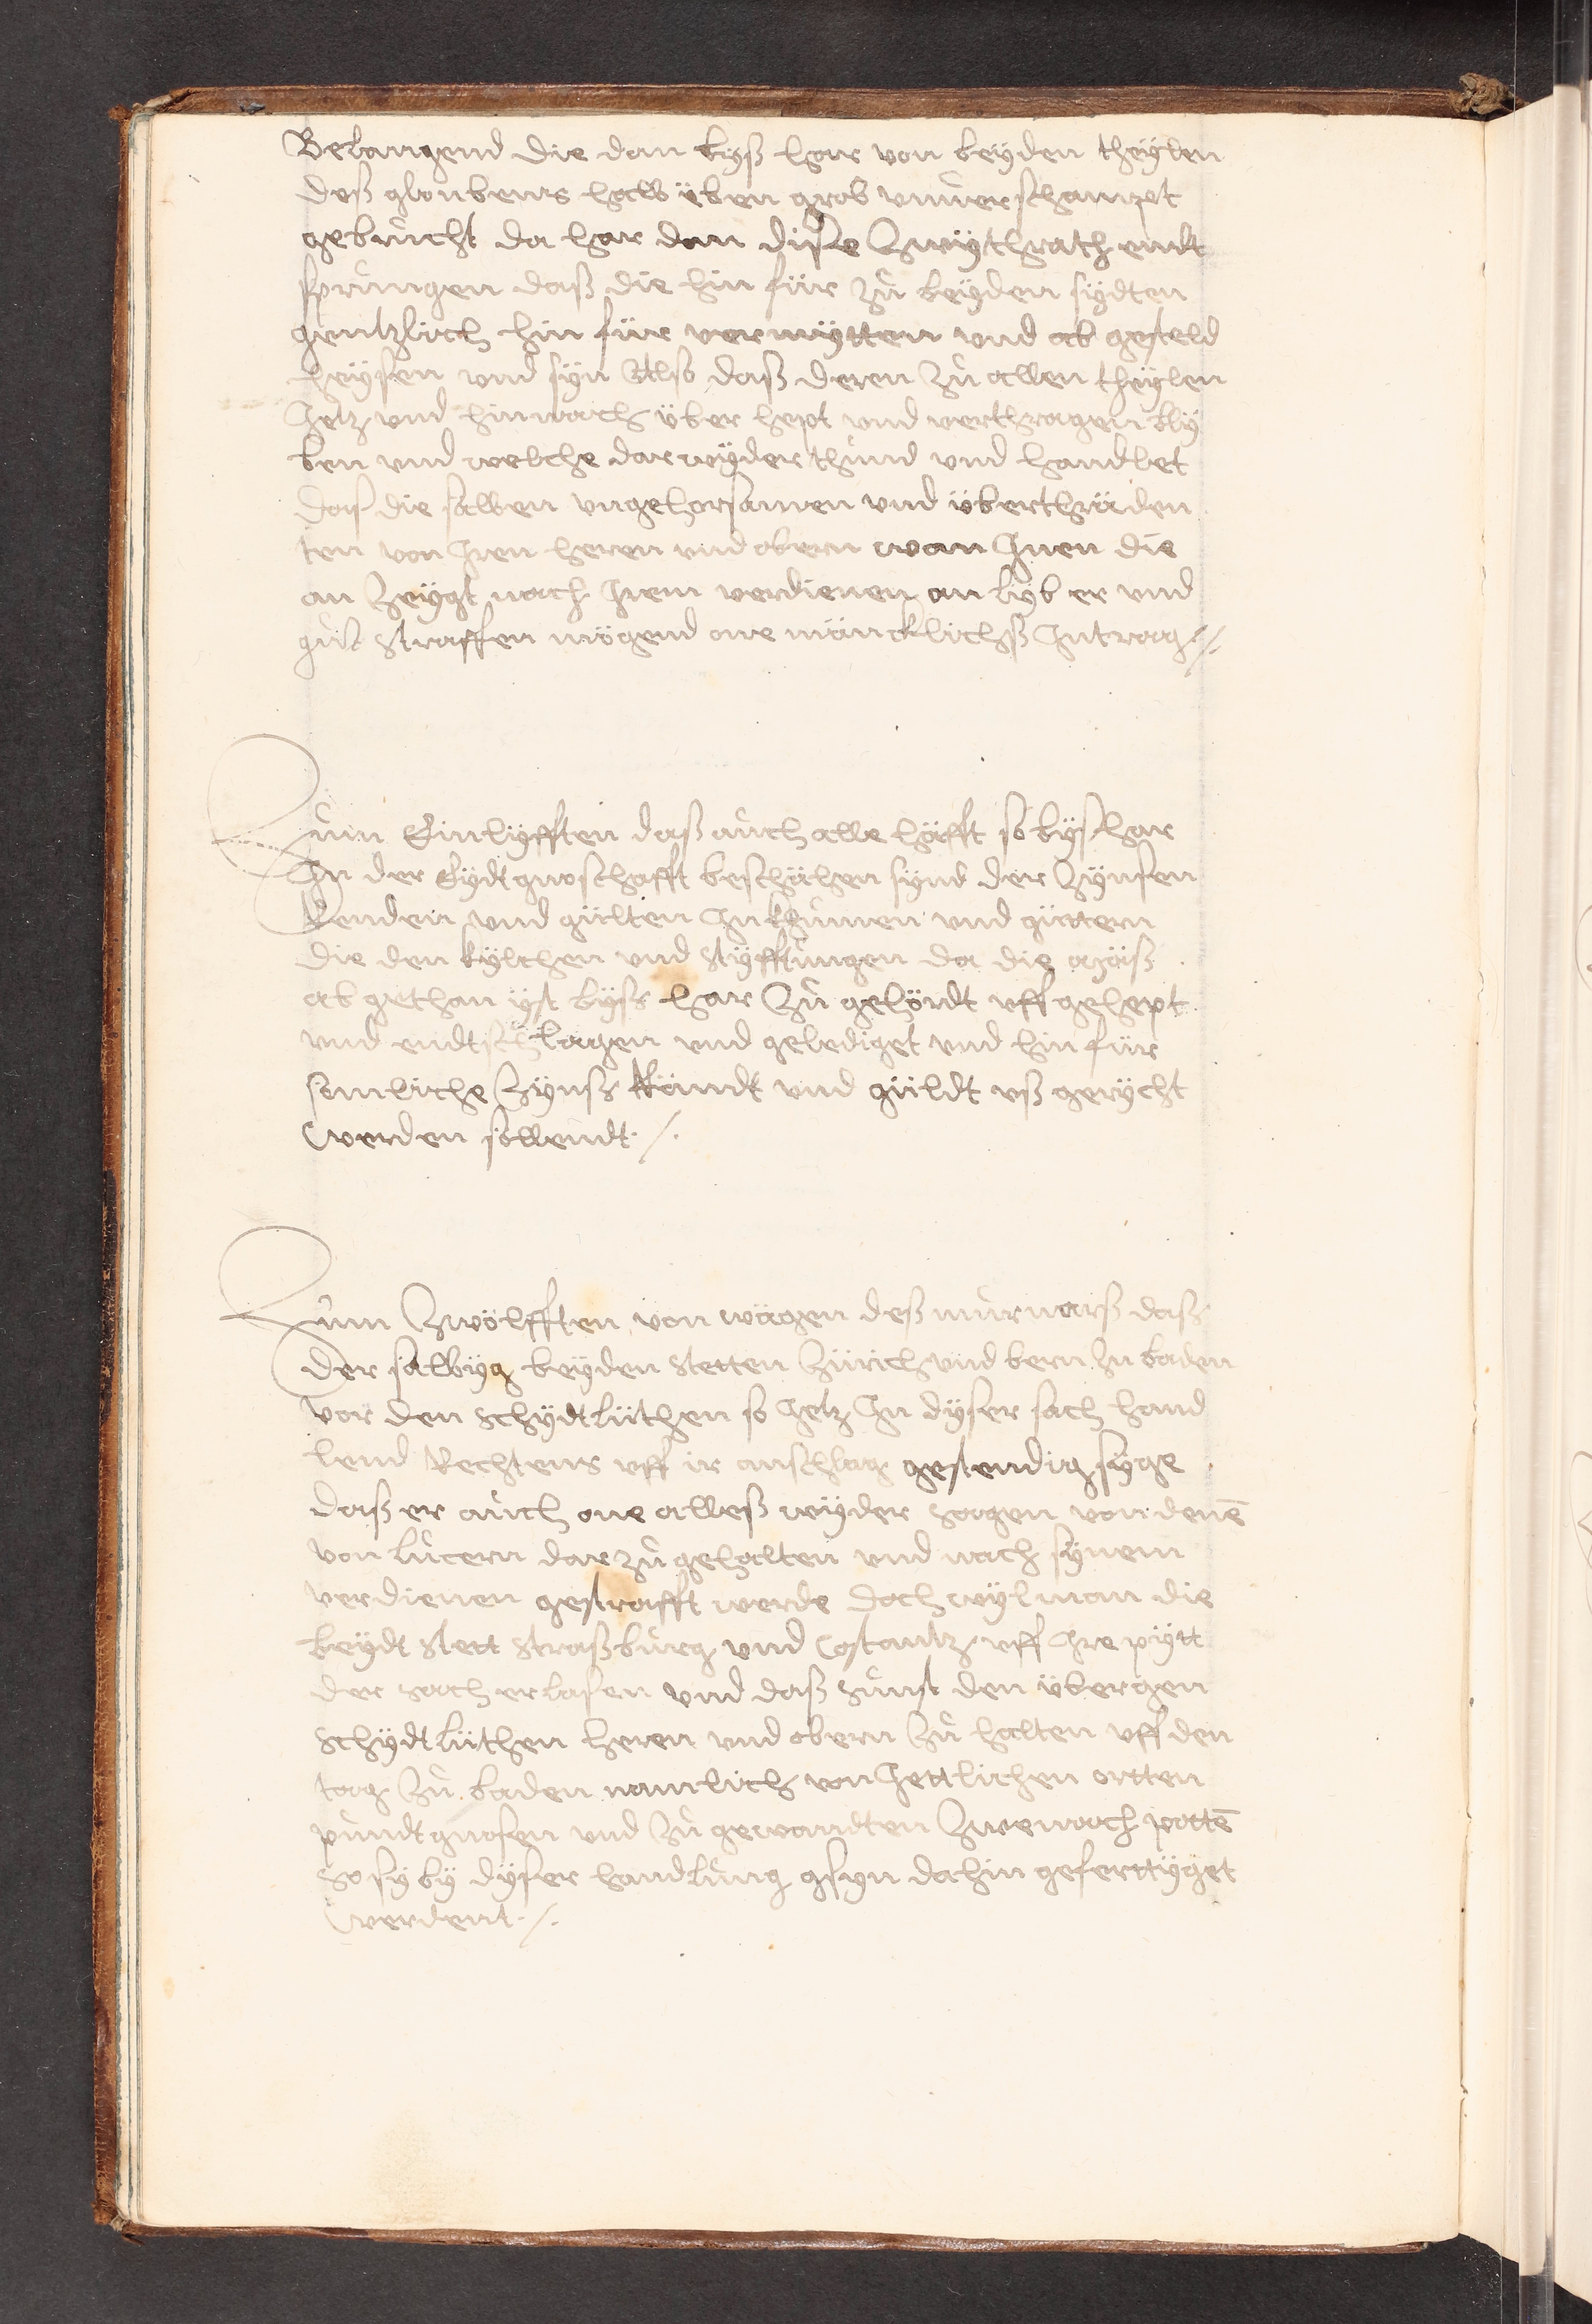 Belangend die dan bysß har von beyden theylen
deß gloubens halb üben grob unverschampt
gebrucht da har dan diße Zwÿthrath endt
sprungen daß die hin für zů beyden sÿdten
gentzlich hin für vermÿtten und ab gesteld
heÿsen und sÿn Also daß deren Zů allen theÿlen
Jetz und hinnach über hept und verthragen blÿ
ben und welche darwÿder thund und handlet
das die salben ungehorsamen und überthräden
ten von Jren heren und obern wan Jnen die
an Zeÿgt nach Jrem verdienen an lÿb er und
gůt straffen mögend one mäncklichß Jntrag ./.
Zum Einlÿfften daß auch alle häfft so bÿßhar
Jn der Eÿdtgnoschafft beschähen sÿnd der Zÿnsen
Renden und gülten Jnkhumen und güttern
die den kÿlchen und Stÿfftungen da die mäß
ab gethan ÿst bÿsß har Zů gehördt uff gehept
und endtschlagen und gelediget und hin für
somliche Zÿnsß Rändt und güldt uß gerÿcht
werden sollendt ./.
Zum Zwölfften von wägen deß murnarß daß
der salbÿg beÿden Stetten Zürich und bern Zu baden
vor den Schÿdtlüthen so Jetz Jn dÿser sach hand
lend Rechtens uff ir anschlag gestendig sÿge
daß er auch one alleß wÿder sagen von denē
von lucern dar zů gehalten und nach sÿnem
verdienen gestrafft werde doch wÿl man die
beÿdt Stett Straßburg und Costantz uff Jre pÿtt
der sach erlasen und daß Sunst den übergen
Schÿdtlüthen heren und obern Zů halten uff den
tag Zů baden namlich von Jettlichen ortten
pundtgnosen und Zů gewandten Zwen nach pottē
so sÿ bÿ dÿser handlung gsÿn dahin geferttÿget
werdent ./.